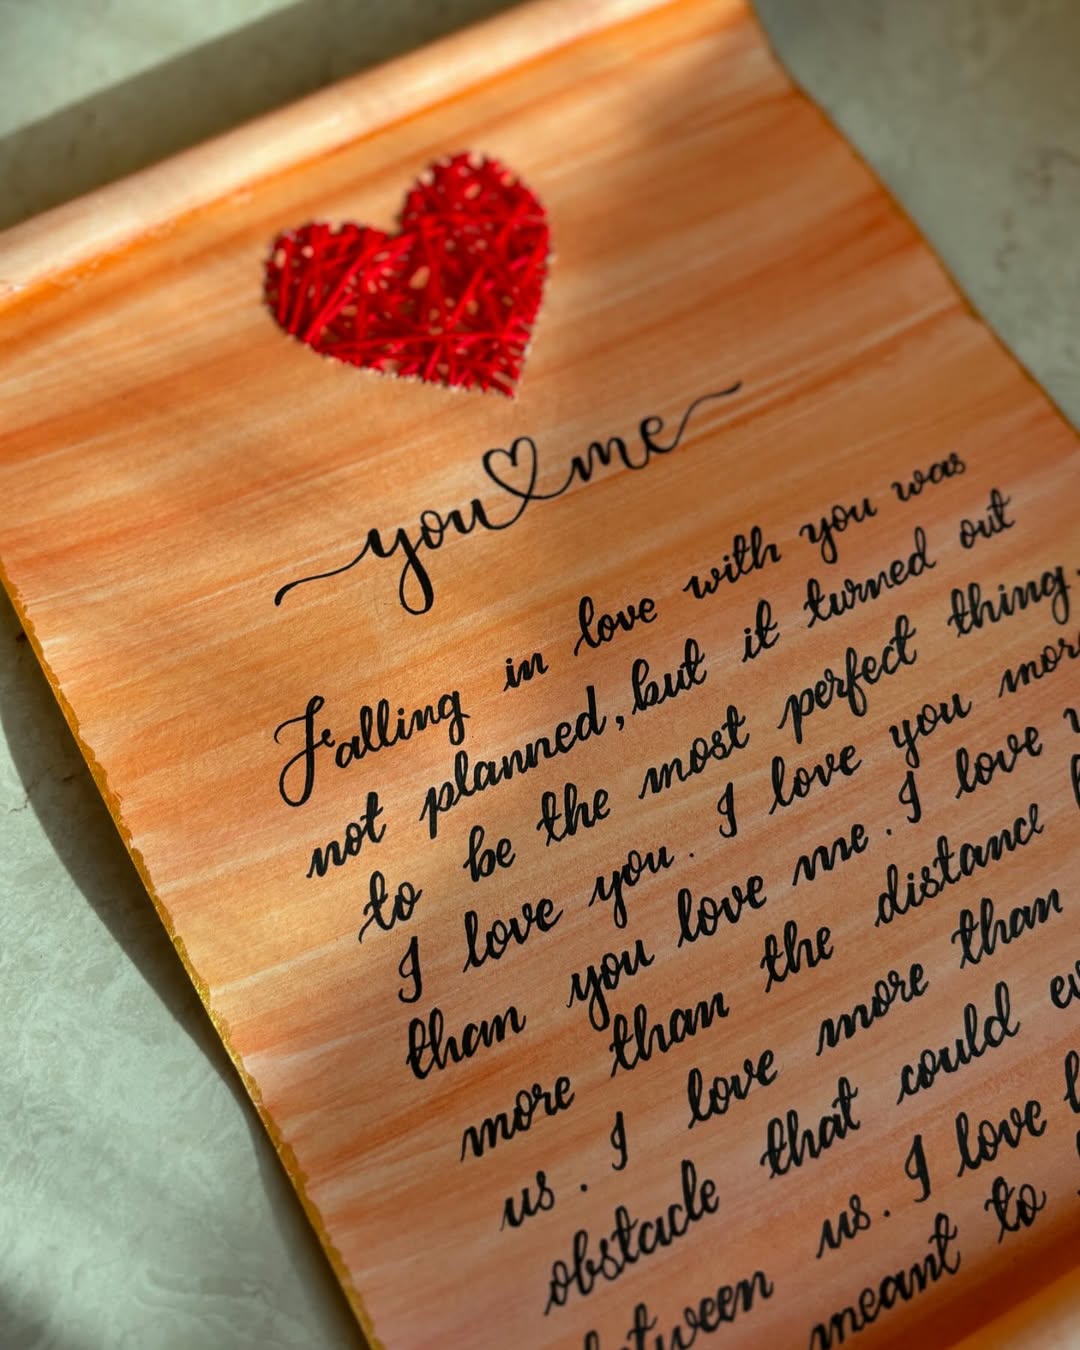 you me
Falling in love with you was
not planned, but it turned out
to be the most perfect thing.
I love you. I love you more
than you love me. I love
more than the distance
us. I love more than
obstacle that could
between us. I love
meant to